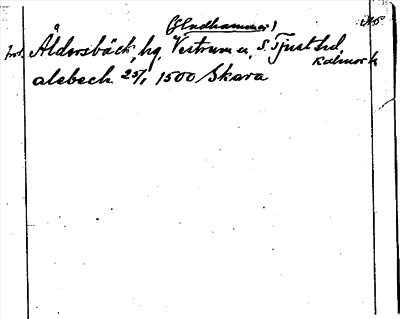 (Gladhammar)
Åldersbäck, hg. Vestrum sn, S. Tjust hd,
Kalmar l.
alebech 25/1 1500 Skara